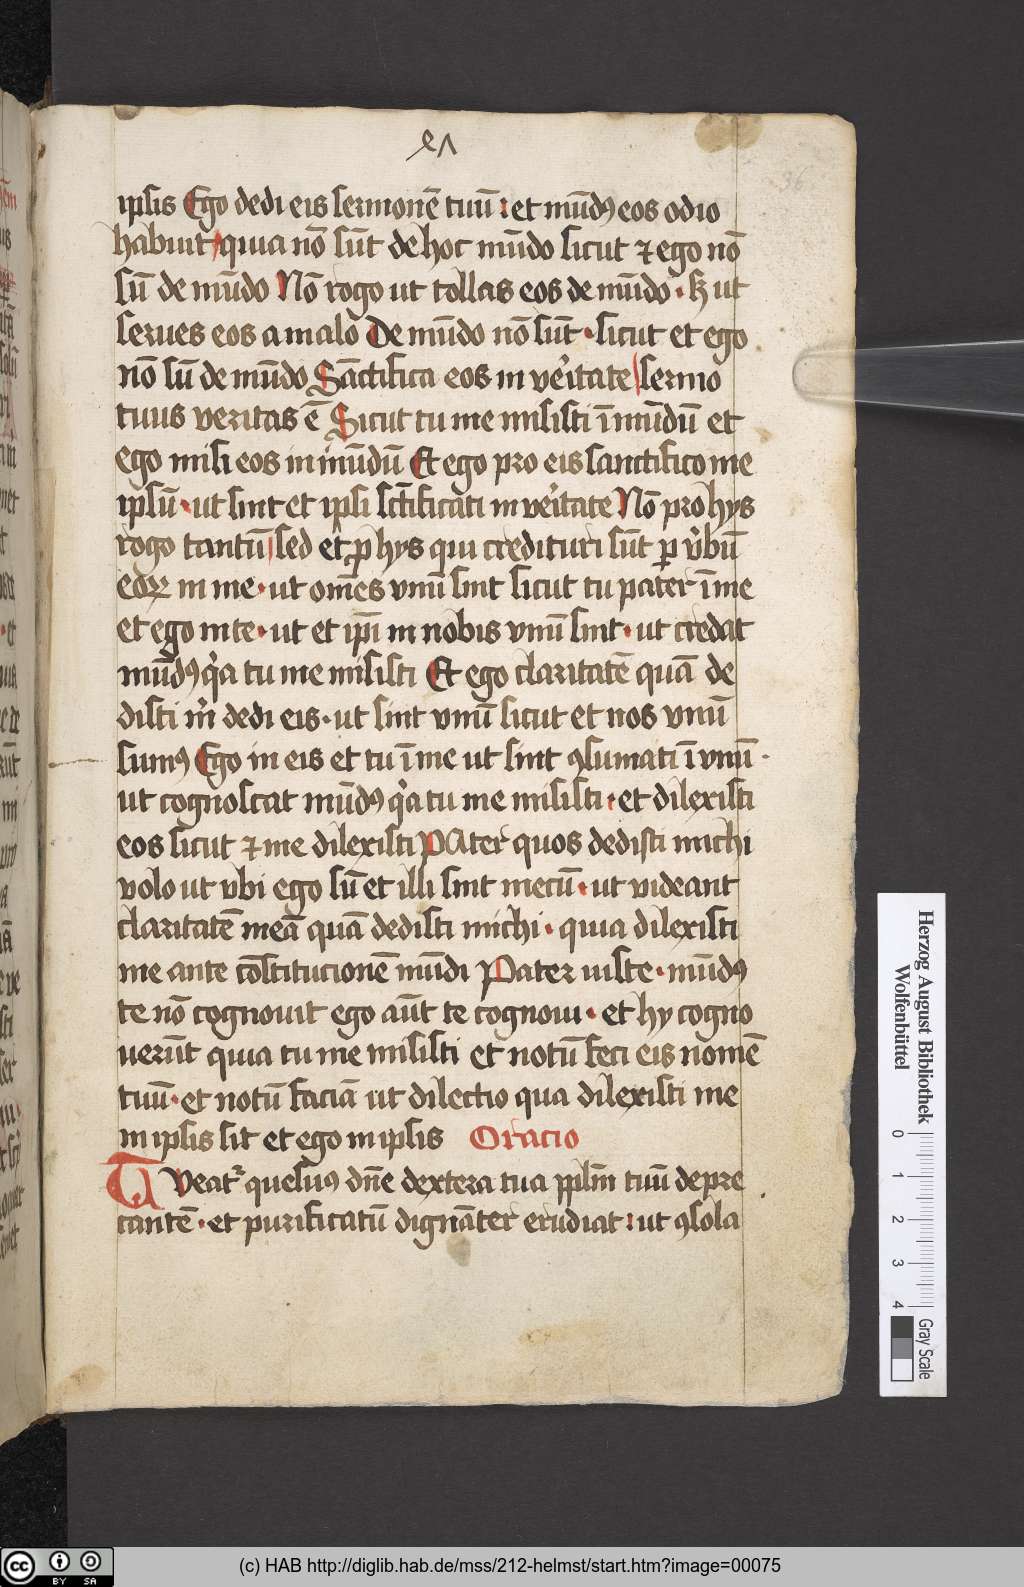 ipsis Ego dedi eis sermonē tuū : et mūdꝯ eos odio
habuit quia nō sūt de hoc mūdo sicut ⁊ ego nō
sū de mūdo Nō rogo ut tollas eos de mūdo · ut
serues eos a malo De mūdo nō sūt · sicut et ego
nō sū de mūdo Sāctifica eos in ve̾itate sermo
tuus veritas ē Sicut tu me misisti ī mūdū et
ego misi eos in mūdū Et ego pro eis sanctifico me
ipsū · ut sint et ipsi sct̄ificati in ve̾itate Nō pro hys
rogo tantū sed et ꝓ hys qui credituri sūt ꝑ v̾bū
eoꝝ in me · ut om̄es vnū sint sicut tu pater ī me
et ego in te · ut et ip̄i in nobis vnū sint · ut credat
mūdꝯ qͥa tu me misisti Et ego claritatē quā de
disti mͥ dedi eis · ut sint vnū sicut et nos vnū
sumꝯ Ego in eis et tu ī me ut sint ꝯsumati ī vnū ·
ut cognoscat mūdꝯ qͥa tu me misisti · et dilexisti
eos sicut ⁊ me dilexisti PAter quos dedisti michi
volo ut vbi ego sū et illi sint mecū · ut videant
claritatē meā quā dedisti michi · quia dilexisti
me ante cōstitucionē mūdi Pater iuste · mūdꝯ
te nō cognouit ego aūt te cognoui · et hy cogno
uerūt quia tu me misisti et notū feci eis nomē
tuū · et notū faciā ut dilectio qua dilexisti me
in ipsis sit et ego in ipsis Oracio
TVeat᷑ quesuꝯ dn̄e dextera tua ppl̄m tuū depre
cantē · et purificatū dignāter erudiat : ut ꝯsola
36
Herzog August Bibliothek
Wolfenbüttel
0 1 2 3 4
Gray Scale
cc BY SA
(c) HAB http://diglib.hab.de/mss/212-helmst/start.htm?image=00075